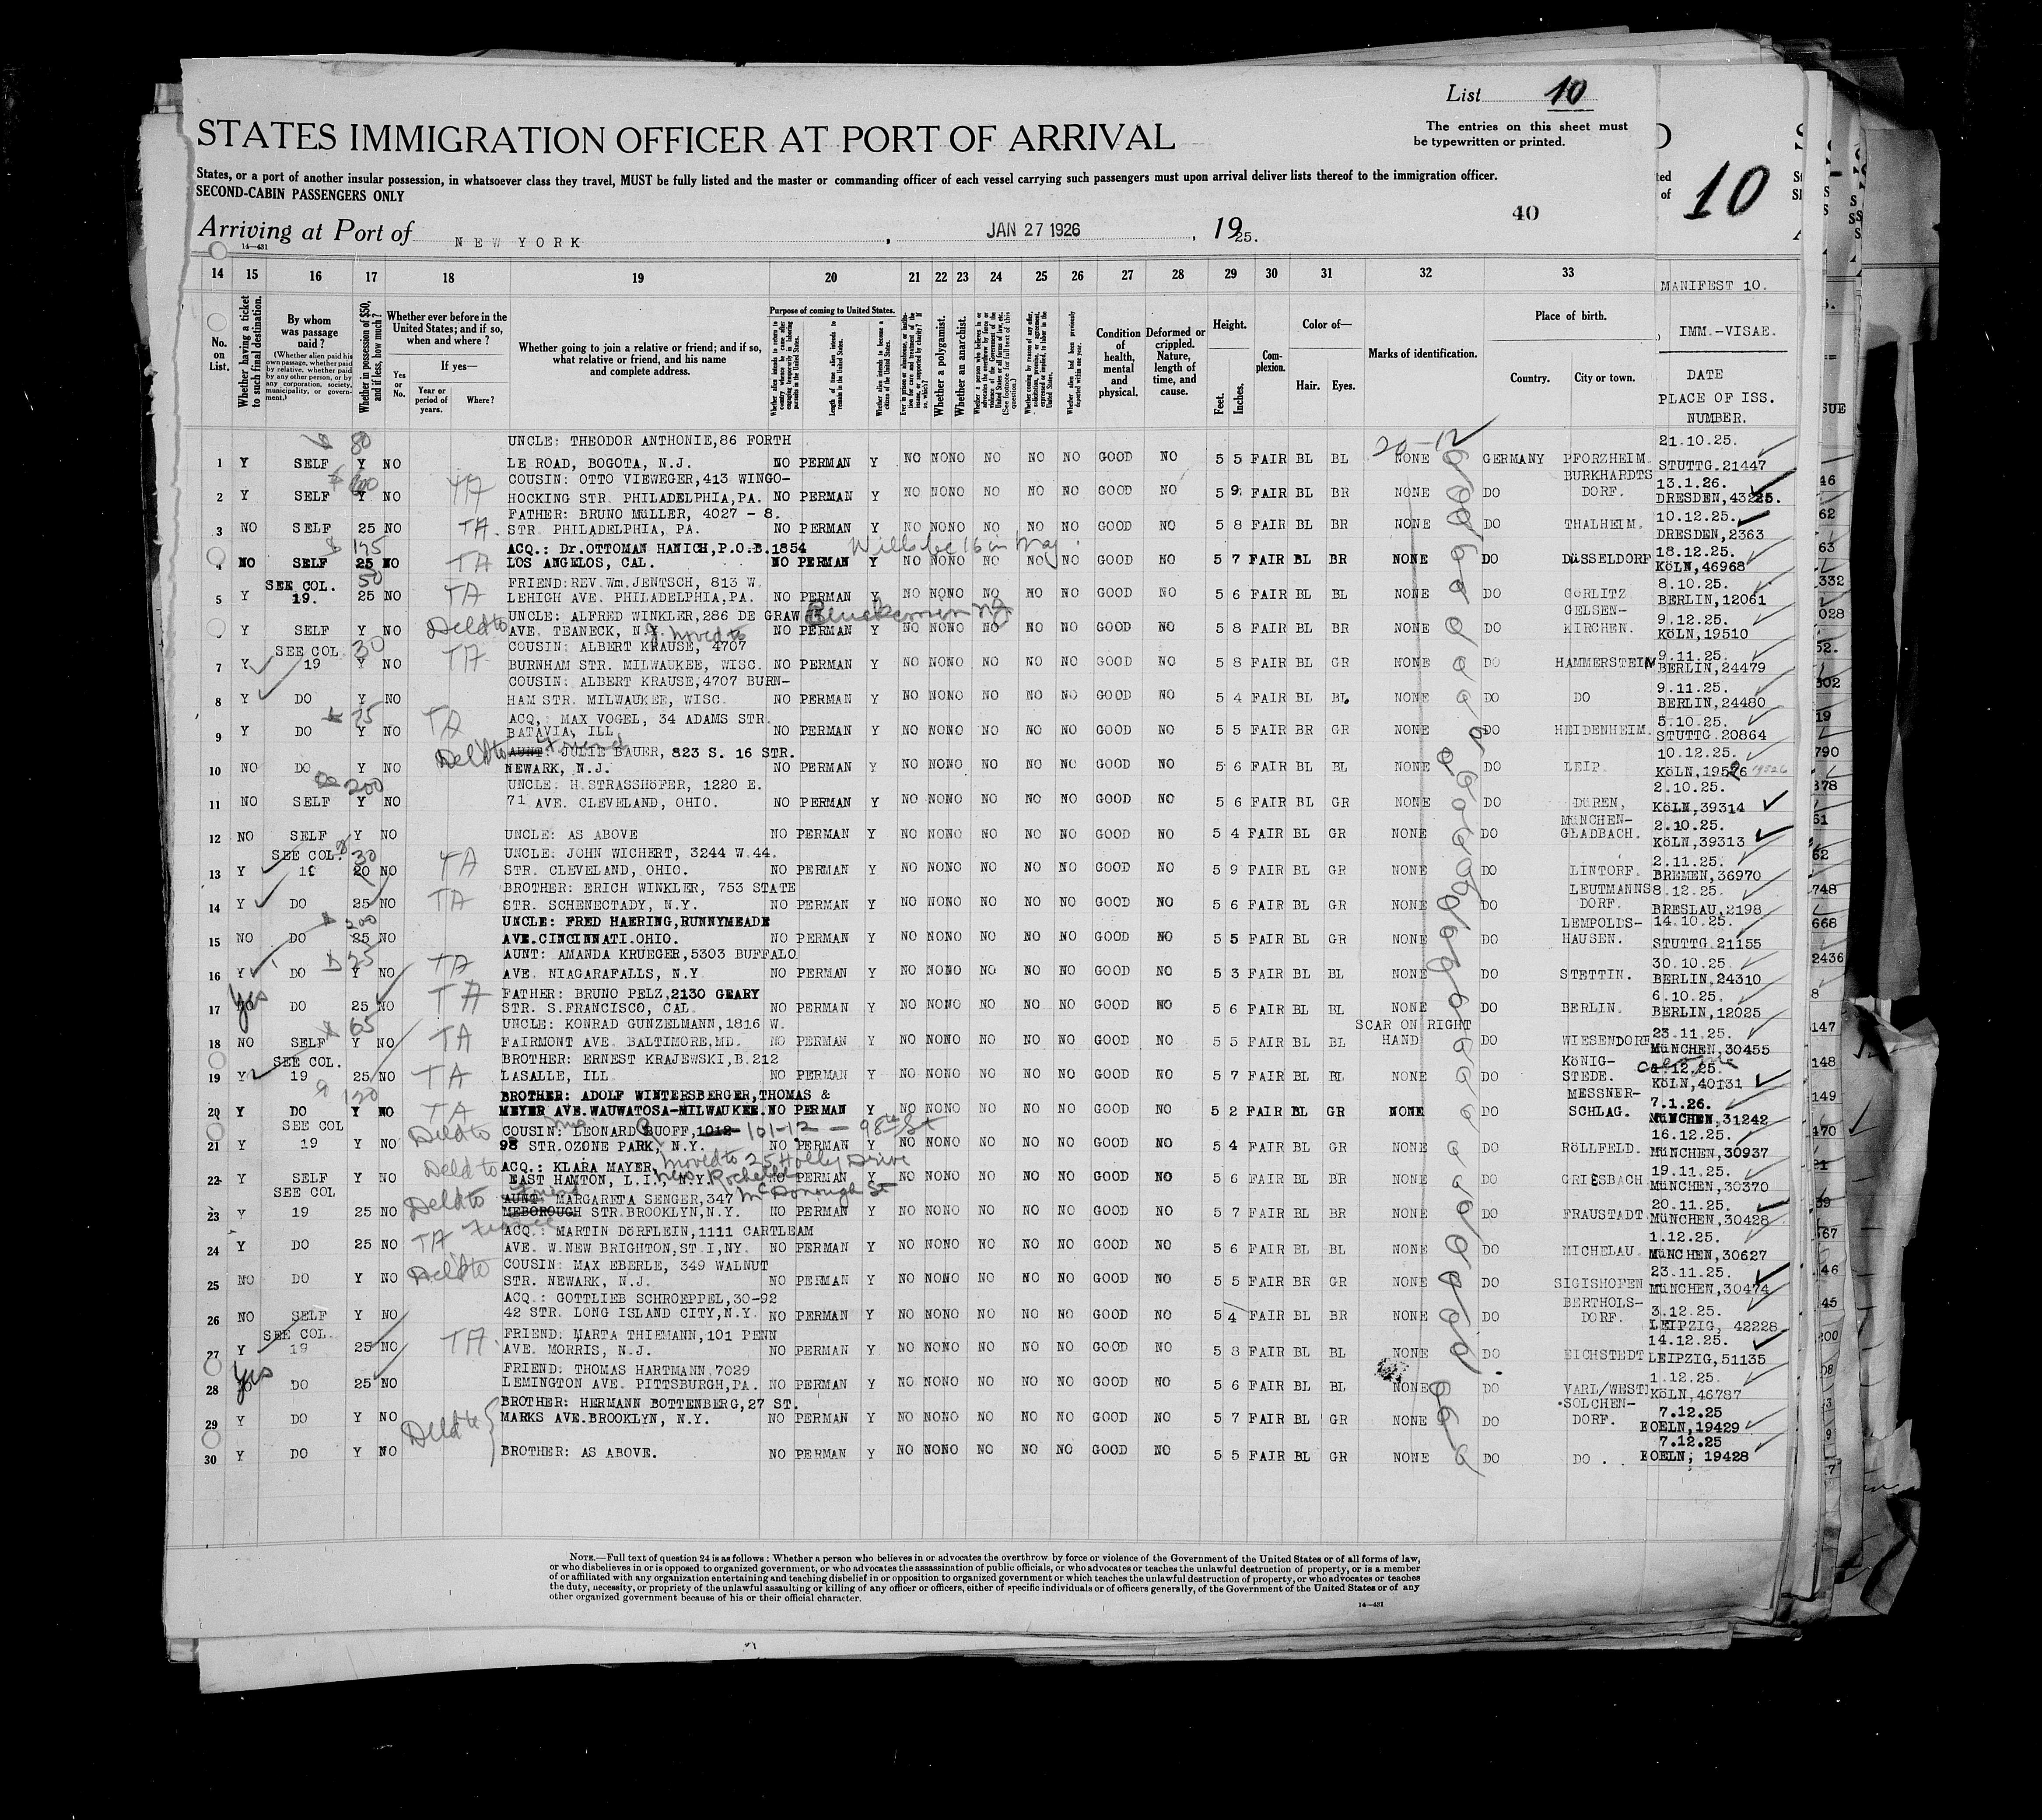 List 10
The entries on this sheet must
be typewritten or printed.
STATES IMMIGRATION OFFICER AT PORT OF ARRIVAL
States, or a port of another insular possession, in whatsoever class they travel, MUST be fully listed and the master or commanding officer of each vessel carrying such passengers must upon arrival deliver lists thereof to the immigration officer.
SECOND-CABIN PASSENGERS ONLY
10
40
Arriving at Port of NEW YORK, JAN 27 1926, 1925.
14—431
14 15 16 17 18 19 20 21 22 23 24 25 26 27 28 29 30 31 32 33
MANIFEST 10.
No. on List.
Whether having a ticket to such final destination.
By whom was passage paid?
(Whether alien paid his own passage, whether paid by relative, whether paid by any other person, or by any corporation, society, municipality, or government.)
Whether in possession of $50, and if less, how much?
Whether ever before in the United States; and if so, when and where?
If yes—
Yes or No.
Year or period of years.
Where?
Whether going to join a relative or friend; and if so, what relative or friend, and his name and complete address.
Purpose of coming to United States.
Length of time alien intends to remain in the United States.
Whether alien intends to become a citizen of the United States.
Whether a polygamist.
Whether an anarchist.
Condition of health, mental and physical.
Deformed or crippled. Nature, length of time, and cause.
Height.
Feet. Inches.
Complexion.
Color of—
Hair. Eyes.
Marks of identification.
Place of birth.
Country. City or town.
IMM.-VISAE.
DATE
PLACE OF ISS.
NUMBER.
80 UNCLE: THEODOR ANTHONIE,86 FORTH 20-12 21.10.25.
1 Y SELF Y NO LE ROAD, BOGOTA, N.J. NO PERMAN Y NO NO NO NO NO NO GOOD NO 5 5 FAIR BL BL NONE GERMANY PFORZHEIM. STUTTG.21447
COUSIN: OTTO VIEWEGER,413 WINGO- BURKHARDTS 13.1.26.
2 Y SELF Y NO TA HOCKING STR. PHILADELPHIA,PA. NO PERMAN Y NO NO NO NO NO NO GOOD NO 5 9 FAIR BL BR NONE DO DORF. DRESDEN,43225.
FATHER: BRUNO MüLLER, 4027 - 8. 10.12.25.
3 NO SELF 25 NO TA. STR. PHILADELPHIA, PA. NO PERMAN Y NO NO NO NO NO NO GOOD NO 5 8 FAIR BL BR NONE DO THALHEIM. DRESDEN,2363
ACQ.: Dr.OTTOMAN HANICH,P.O.B.1854 Will be 16 in May 18.12.25.
4 NO SELF 25 NO TA LOS ANGELOS, CAL. NO PERMAN Y NO NO NO NO NO NO GOOD NO 5 7 FAIR BL BR NONE DO DüSSELDORF KÖLN,46968
SEE COL. 50 FRIEND:REV.Wm.JENTSCH, 813 W. 8.10.25.
5 Y 19. 25 NO TA LEHIGH AVE. PHILADELPHIA,PA. NO PERMAN Y NO NO NO NO NO NO GOOD NO 5 6 FAIR BL BL NONE DO GÖRLITZ BERLIN,12061
UNCLE: ALFRED WINKLER,286 DE GRAW GELSEN- 9.12.25.
6 Y SELF Y NO Deld to AVE. TEANECK, N.J. moved to NO PERMAN Y NO NO NO NO NO NO GOOD NO 5 8 FAIR BL BR NONE DO KIRCHEN. KÖLN,19510
SEE COL 30 COUSIN: ALBERT KRAUSE, 4707 9.11.25.
7 Y 19 Y NO TA BURNHAM STR. MILWAUKEE, WISC. NO PERMAN Y NO NO NO NO NO NO GOOD NO 5 8 FAIR BL GR NONE DO HAMMERSTEIN BERLIN,24479
COUSIN: ALBERT KRAUSE,4707 BURN- 9.11.25.
8 Y DO Y NO HAM STR. MILWAUKEE, WISC. NO PERMAN Y NO NO NO NO NO NO GOOD NO 5 4 FAIR BL BL. NONE DO DO BERLIN,24480
ACQ, MAX VOGEL, 34 ADAMS STR. 5.10.25.
9 Y DO Y NO TA BATAVIA, ILL NO PERMAN Y NO NO NO NO NO NO GOOD NO 5 5 FAIR BR GR NONE DO HEIDENHEIM. STUTTG.20864
Deld to AUNT: Friend JULIE BAUER, 823 S. 16 STR. 10.12.25.
10 NO DO Y NO NEWARK, N.J. NO PERMAN Y NO NO NO NO NO NO GOOD NO 5 6 FAIR BL BL NONE DO LEIP. KÖLN,19526 19526
200 UNCLE: H.STRASSHöFER, 1220 E. 2.10.25.
11 NO SELF Y NO 71 AVE. CLEVELAND, OHIO. NO PERMAN Y NO NO NO NO NO NO GOOD NO 5 6 FAIR BL GR NONE DO DüREN, KÖLN,39314
MüNCHEN- 2.10.25.
12 NO SELF Y NO UNCLE: AS ABOVE NO PERMAN Y NO NO NO NO NO NO GOOD NO 5 4 FAIR BL GR NONE DO GLADBACH. KÖLN,39313
SEE COL. 30 UNCLE: JOHN WICHERT, 3244 W.44. 2.11.25.
13 Y 19 20 NO TA STR. CLEVELAND, OHIO. NO PERMAN Y NO NO NO NO NO NO GOOD NO 5 9 FAIR BL GR NONE DO LINTORF. BREMEN,36970
BROTHER: ERICH WINKLER, 753 STATE LEUTMANNS 8.12.25.
14 Y DO 25 NO TA STR. SCHENECTADY, N.Y. NO PERMAN Y NO NO NO NO NO NO GOOD NO 5 6 FAIR BL GR NONE DO DORF. BRESLAU,2198
200 UNCLE: FRED HAERING,RUNNYMEADE LEMPOLDS- 14.10.25.
15 NO DO 25 NO AVE.CINCINNATI.OHIO. NO PERMAN Y NO NO NO NO NO NO GOOD NO 5 5 FAIR BL GR NONE DO HAUSEN. STUTTG.21155
AUNT: AMANDA KRUEGER,5303 BUFFALO 30.10.25.
16 Y DO Y NO TA AVE. NIAGARAFALLS, N.Y NO PERMAN Y NO NO NO NO NO NO GOOD NO 5 3 FAIR BL BL NONE DO STETTIN. BERLIN,24310
yes FATHER: BRUNO PELZ,2130 GEARY 6.10.25.
17 NO DO 25 NO TA STR. S.FRANCISCO, CAL. NO PERMAN Y NO NO NO NO NO NO GOOD NO 5 6 FAIR BL BL NONE DO BERLIN. BERLIN,12025
65 UNCLE: KONRAD GUNZELMANN,1816 W. SCAR ON RIGHT 23.11.25.
18 NO SELF Y NO TA FAIRMONT AVE. BALTIMORE,MD. NO PERMAN Y NO NO NO NO NO NO GOOD NO 5 5 FAIR BL BL HAND DO WIESENDORF MüNCHEN,30455
SEE COL. BROTHER: ERNEST KRAJEWSKI,B.212 KöNIG- 1.12.25.
19 Y 19 25 NO TA LASALLE, ILL NO PERMAN Y NO NO NO NO NO NO GOOD NO 5 7 FAIR BL BL NONE DO STEDE. KÖLN,40131
120 BROTHER: ADOLF WINTERSBERGER,THOMAS & MESSNER- 7.1.26.
20 Y DO Y NO TA MEYER AVE.WAUWATOSA-MILWAUKEE. NO PERMAN Y NO NO NO NO NO NO GOOD NO 5 2 FAIR BL GR NONE DO SCHLAG. MüNCHEN,31242
SEE COL Deld to COUSIN: LEONARD RUOFF,1012 101-12 — 98th St 16.12.25.
21 Y 19 Y NO 98 STR.OZONE PARK, N.Y. NO PERMAN Y NO NO NO NO NO NO GOOD NO 5 4 FAIR BL GR NONE DO RöLLFELD. MüNCHEN,30937
Deld to ACQ.: KLARA MAYER, moved to 25 Holly Drive 19.11.25.
22 Y SELF Y NO EAST HAMTON, L.I., N.Y. New Rochelle NO PERMAN Y NO NO NO NO NO NO GOOD NO 5 6 FAIR BL BR NONE DO GRIESBACH MüNCHEN,30370
SEE COL Deld to AUNT Friend MARGARETA SENGER,347 McDonough St 20.11.25.
23 Y 19 25 NO MEBOROUGH STR.BROOKLYN,N.Y. NO PERMAN Y NO NO NO NO NO NO GOOD NO 5 7 FAIR BL BR NONE DO FRAUSTADT MüNCHEN,30428
TA Fiancee ACQ.: MARTIN DöRFLEIN,1111 CARTLEAM 1.12.25.
24 Y DO 25 NO AVE. W.NEW BRIGHTON,ST.I,NY. NO PERMAN Y NO NO NO NO NO NO GOOD NO 5 6 FAIR BL BL NONE DO MICHELAU. MüNCHEN,30627
Deld to COUSIN: MAX EBERLE, 349 WALNUT 23.11.25.
25 NO DO Y NO STR. NEWARK, N.J. NO PERMAN Y NO NO NO NO NO NO GOOD NO 5 5 FAIR BR GR NONE DO SIGISHOFEN MüNCHEN,30474
ACQ.: GOTTLIEB SCHROEPPEL,30-92 BERTHOLS- 3.12.25.
26 NO SELF Y NO 42 STR. LONG ISLAND CITY,N.Y. NO PERMAN Y NO NO NO NO NO NO GOOD NO 5 4 FAIR BL BR NONE DO DORF. LEIPZIG, 42228
SEE COL. FRIEND: MARTA THIEMANN,101 PENN 14.12.25.
27 Y 19 25 NO TA. AVE. MORRIS, N.J. NO PERMAN Y NO NO NO NO NO NO GOOD NO 5 8 FAIR BL BL NONE DO EICHSTEDT LEIPZIG,51135
yes FRIEND: THOMAS HARTMANN 7029 1.12.25.
28 NO DO 25 NO LEMINGTON AVE. PITTSBURGH,PA. NO PERMAN Y NO NO NO NO NO NO GOOD NO 5 6 FAIR BL BL NONE DO VARL/WEST KÖLN,46787
BROTHER: HERMANN BOTTENBERG,27 ST. SOLCHEN- 7.12.25
29 Y DO Y NO Deld to MARKS AVE.BROOKLYN, N.Y. NO PERMAN Y NO NO NO NO NO NO GOOD NO 5 7 FAIR BL GR NONE DO DORF. KOELN,19429
7.12.25
30 Y DO Y NO BROTHER: AS ABOVE. NO PERMAN Y NO NO NO NO NO NO GOOD NO 5 5 FAIR BL GR NONE DO DO . KOELN; 19428
NOTE.—Full text of question 24 is as follows: Whether a person who believes in or advocates the overthrow by force or violence of the Government of the United States or of all forms of law,
or who disbelieves in or is opposed to organized government, or who advocates the assassination of public officials, or who advocates or teaches the unlawful destruction of property, or is a member
of or affiliated with any organization entertaining and teaching disbelief in or opposition to organized government or which teaches the unlawful destruction of property, or who advocates or teaches
the duty, necessity, or propriety of the unlawful assaulting or killing of any officer or officers, either of specific individuals or of officers generally, of the Government of the United States or of any
other organized government because of his or their official character.
14—431